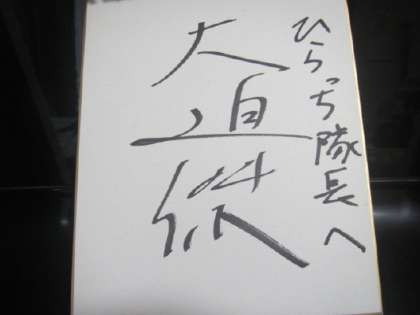 ひらっち隊長へ
大道傑